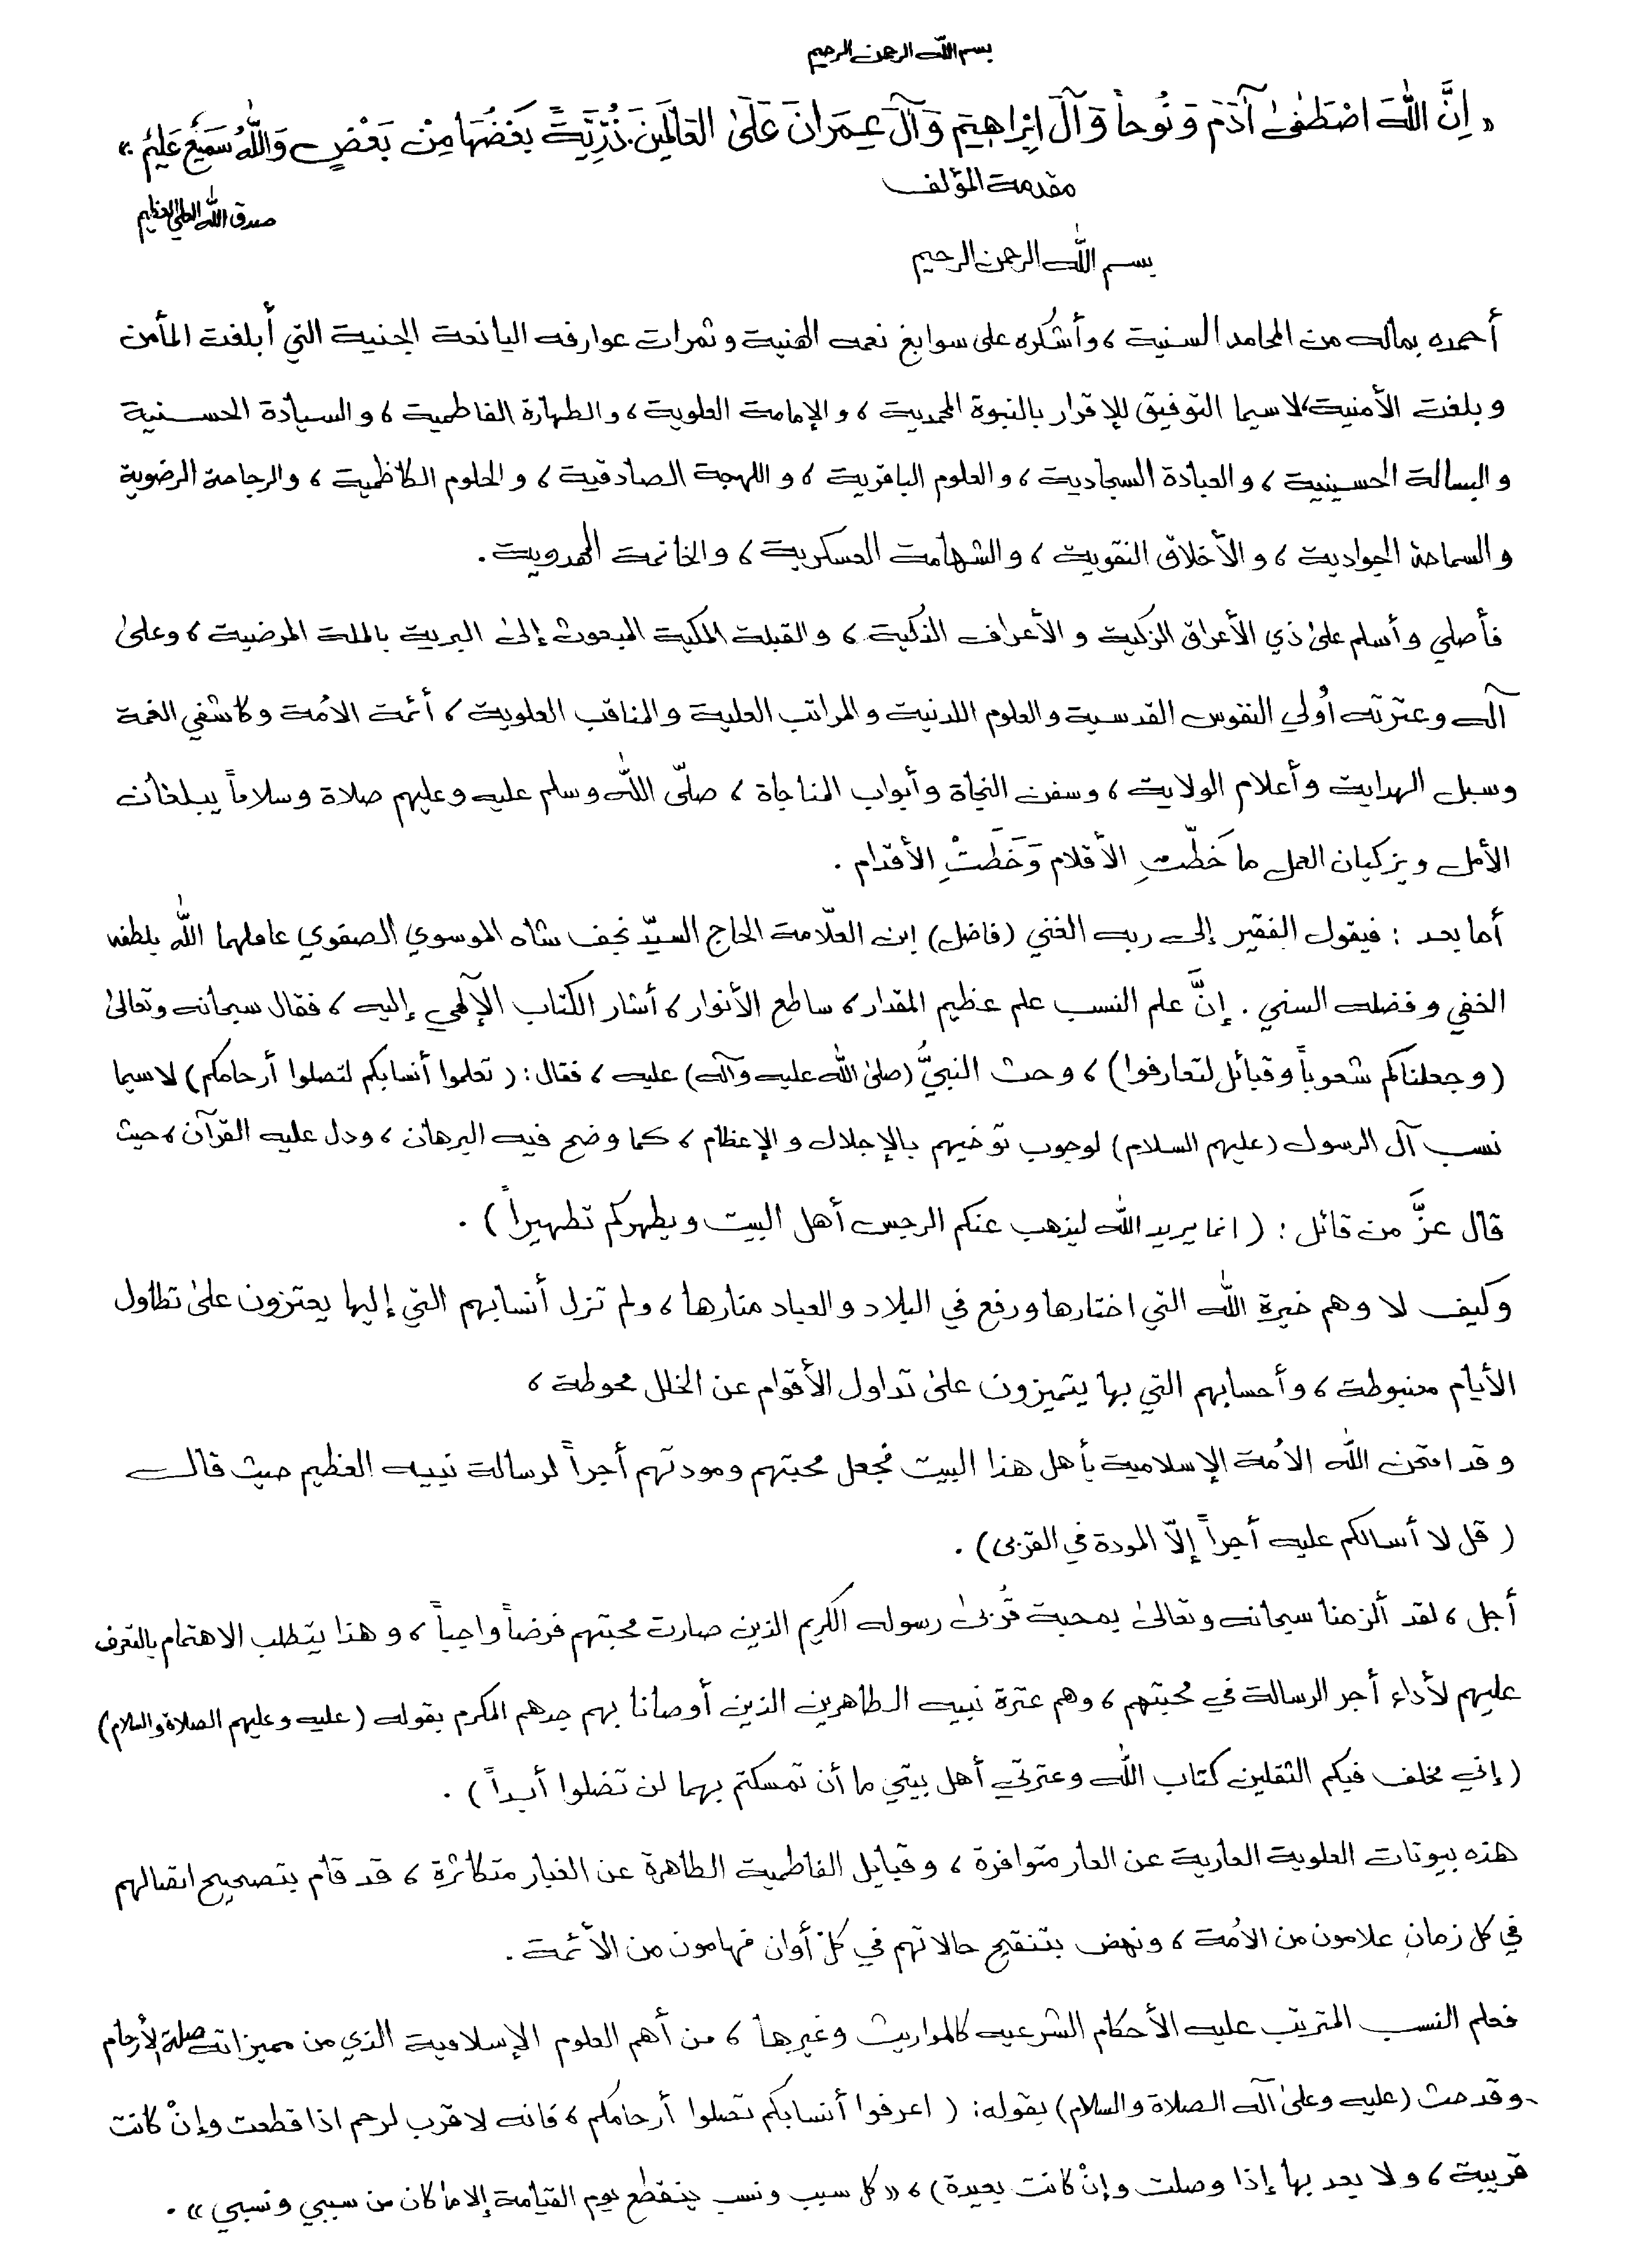 بسم الله الرحمن الرحيم
« إِنَّ اللهَ اصْطَفىٰ آدَمَ وَنُوحاً وَآلَ إِبْراهِيمَ وَآلَ عِمرَانَ عَلَىٰ العَالَمِينَ. ذُرِّيَّةً بَعْضُهَا مِنْ بَعْضٍ وَاللهُ سَمِيعٌ عَلِيمٌ . »
مقدمة المؤلف
صدق الله العلي العظيم
بسم الله الرحمن الرحيم
أحمده بماله من المحامد السنية ، وأشكره على سوابغ نعمه الهنية وثمرات عوارفه اليانعة الجنية التي أبلغت المأمن
وبلغت الأمنية، لاسيما التوفيق للإقرار بالنبوة المحمدية ، والإمامة العلوية ، والطهارة الفاطمية ، والسيادة الحسنية
والبسالة الحسينية ، والعبادة السجادية ، والعلوم الباقرية ، واللهجة الصادقية ، والحلوم الكاظمية ، والرجاحة الرضوية
والسماحة الجوادية ، والأخلاق النقوية ، والشهامة العسكرية ، والخاتمة المهدوية .
فأصلي وأسلم علىٰ ذي الأعراق الزكية والأعراف الذكية ، والقبلة المكية المبعوث إلىٰ البرية بالملة المرضية ، وعلىٰ
آله وعترته اُولي النفوس القدسية والعلوم اللدنية والمراتب العلية والمناقب العلوية ، أئمة الاُمة وكاشفي الغمة
وسبل الهداية وأعلام الولاية ، وسفن النجاة وأبواب المناجاة ، صلّى الله وسلم عليه وعليهم صلاة وسلاماً يبلغان
الأمل ويزكيان العمل ما خَطّتِ الأقلام وَخَطَتْ الأقدام .
أما بعد : فيقول الفقير إلى ربه الغني (فاضل) ابن العلّامة الحاج السيّد نجف شاه الموسوي الصفوي عاملهما الله بلطفه
الخفي وفضله السني . إنَّ علم النسب علم عظيم المقدار ، ساطع الأنوار ، أشار الكتاب الإلٓهي إليه ، فقال سبحانه وتعالىٰ
(وجعلناكم شعوباً وقبائل لتعارفوا) ، وحث النبيُّ (صلىٰ الله عليه وآله) عليه ، فقال : (تعلموا أنسابكم لتصلوا أرحامكم) لاسيما
نسب آل الرسول (عليهم السلام) لوجوب توخيهم بالإجلال والإعظام ، كما وضح فيه البرهان ، ودل عليه القرآن ، حيث
قال عزَّ من قائل : (انما يريد الله ليذهب عنكم الرجس أهل البيت ويطهركم تطهيراً) .
وكيف لا وهم خيرة الله التي اختارها ورفع في البلاد والعباد منارها ، ولم تزل أنسابهم التي إليها يعتزون علىٰ تطاول
الأيام مضبوطة ، وأحسابهم التي بها يتميزون علىٰ تداول الأقوام عن الخلل محوطة ،
وقد امتحن الله الاُمة الإسلامية بأهل هذا البيت فجعل محبتهم ومودتهم أجراً لرسالة نبيه العظيم حيث قال
(قل لا أسالكم عليه أجراً إلاّ المودة في القربى) .
أجل ، لقد ألزمنا سبحانه وتعالىٰ بمحبة قُربىٰ رسوله الكريم الذين صارت محبتهم فرضاً واجباً ، وهذا يتطلب الاهتمام بالتعرف
عليهم لأداء أجر الرسالة في محبتهم ، وهم عترة نبيه الطاهرين الذين أوصانا بهم جدهم المكرم بقوله (عليه وعليهم الصلاة والسلام)
(إني مخلف فيكم الثقلين كتاب الله وعترتي أهل بيتي ما أن تمسكتم بهما لن تضلوا أبداً) .
هذه بيوتات العلوية العارية عن العار متوافرة ، وقبايل الفاطمية الطاهرة عن الغبار متكاثرة ، قد قام بتصحيح اتصالهم
في كل زمانٍ علامون من الاُمة ، ونهض بتنقيح حالاتهم في كلّ أوان فهامون من الأئمة .
فعلم النسب المترتب عليه الأحكام الشرعيه كالمواريث وغيرها ، من أهم العلوم الإسلامية الذي من مميزاته صلة الأرحام
وقد حث (عليه وعلىٰ آله الصلاة والسلام) بقوله : (اعرفوا أنسابكم تصلوا أرحامكم ، فانه لا قرب لرحم اذا قطعت وإنْ كانت
قريبة ، ولا بعد بها إذا وصلت وإنْ كانت بعيدة) ، «كل سبب ونسب ينقطع يوم القيامة إلا ما كان من سببي ونسبي» .